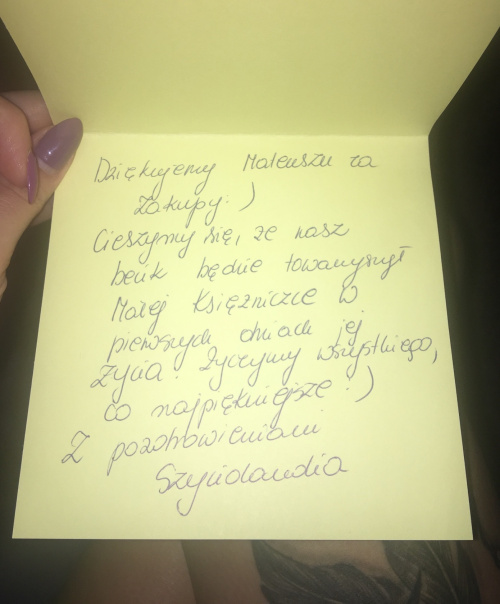 Dziękujemy Mateuszu za
zakupy :)
Cieszymy się, że nasz
becik będzie towarzyszył
Małej Księżniczce w
pierwszych dniach jej
życia. Życzymy wszystkiego,
co najpiękniejsze :)
Z pozdrowieniami
Szyciolandia